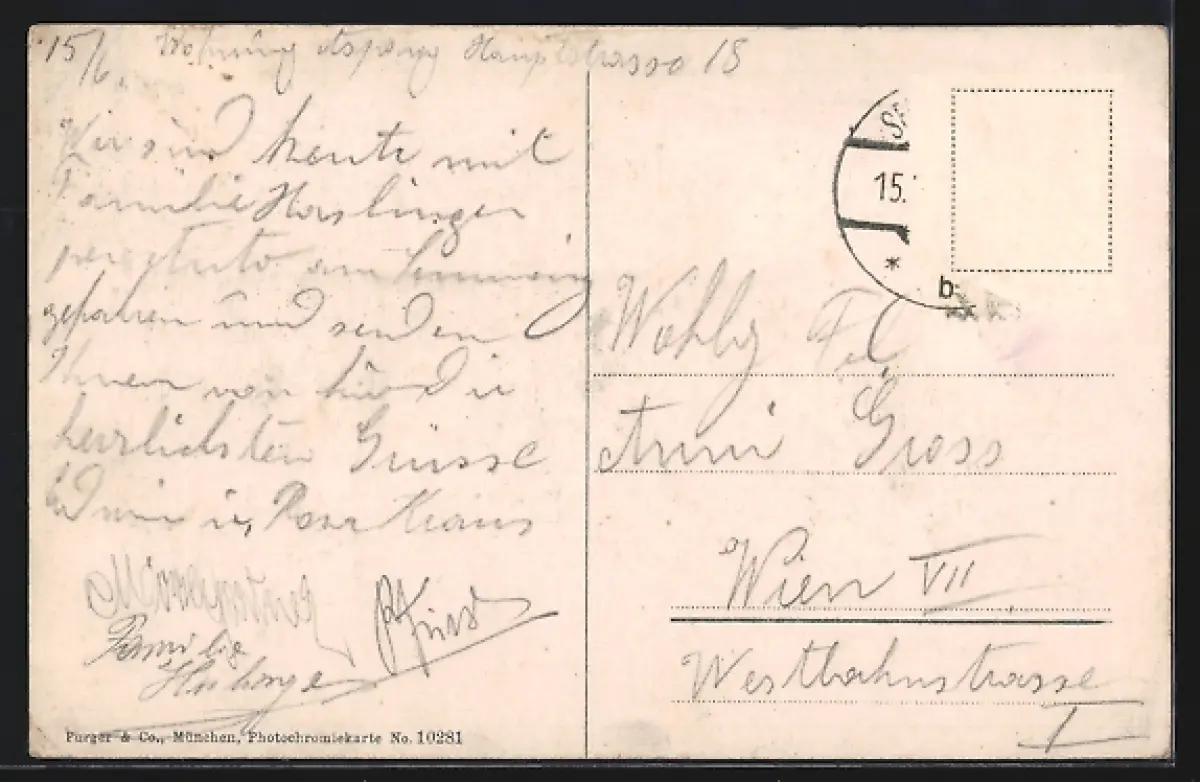 15/6. Wohnung Aspang Hauptstrasse 15
Wir sind heute mit
Familie Haslinger
per Auto am Semmering
gefahren und senden
Ihnen von hier die
herrlichsten Grüsse
Rosa Kraus
Familie
Haslinger
Purger & Co., München, Photochromiekarte No. 10281
15.
*
b
Wohlg Frl
Anni Gross
Wien VII
Westbahnstrasse